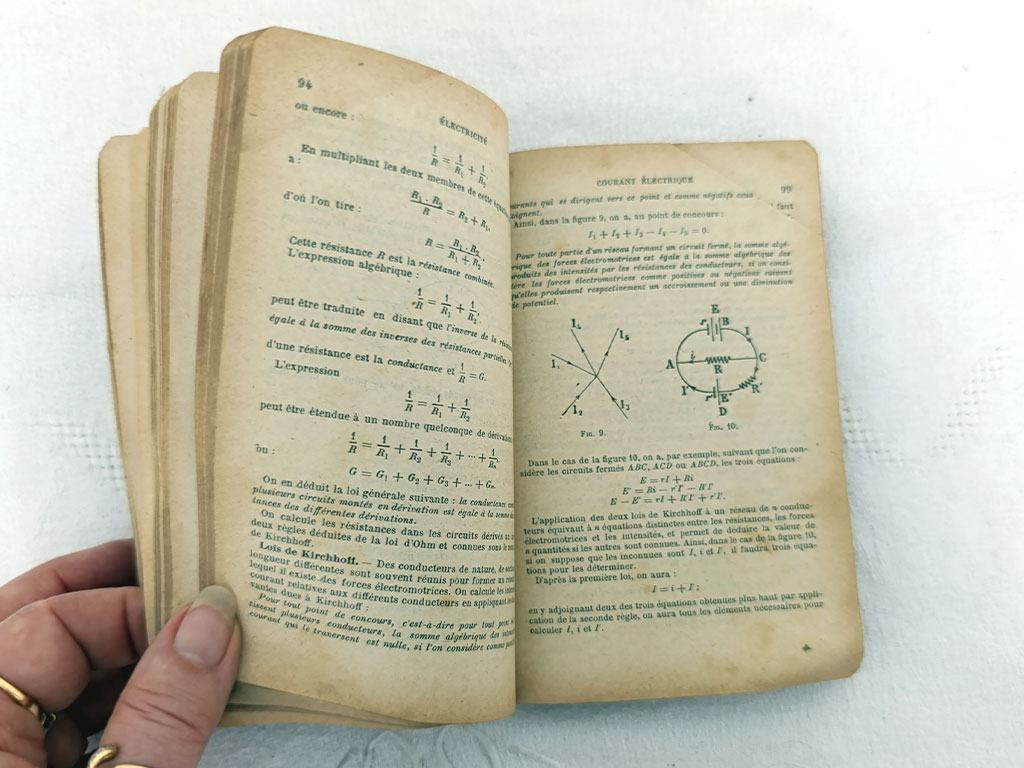 94
ÉLECTRICITÉ
ou encore :
1/R = 1/R₁ + 1/R₂.
En multipliant les deux membres de cette
a :
R₁ . R₂/R = R₂ + R₁,
d'où l'on tire :
R = R₁ . R₂/R₁ + R₂.
Cette résistance R est la résistance combinée.
L'expression algébrique :
1/R = 1/R₁ + 1/R₂,
peut être traduite en disant que l'inverse de la
égale à la somme des inverses des résistances partielles
d'une résistance est la conductance et 1/R = G.
L'expression
1/R = 1/R₁ + 1/R₂
peut être étendue à un nombre quelconque de dérivations
1/R = 1/R₁ + 1/R₂ + 1/R₃ + ... + 1/Rₙ
ou :
G = G₁ + G₂ + G₃ + ... + Gₙ.
On en déduit la loi générale suivante : la conductance
plusieurs circuits montés en dérivation est égale à la somme
tances des différentes dérivations.
On calcule les résistances dans les circuits dérivés
deux règles déduites de la loi d'Ohm et connues sous le
de Kirchhoff.
Lois de Kirchhoff. — Des conducteurs de nature, de
longueur différentes sont souvent réunis pour former un
lequel il existe des forces électromotrices. On calcule les
courant relatives aux différents conducteurs en appliquant
vantes dues à Kirchhoff :
Pour tout point de concours, c'est-à-dire pour tout point
tissent plusieurs conducteurs, la somme algébrique des
courant qui le traversent est nulle, si l'on considère comme
COURANT ÉLECTRIQUE
99
courants qui se dirigent vers ce point et comme négatifs ceux
faut
Ainsi, dans la figure 9, on a, au point de concours :
I₁ + I₂ + I₃ — I₄ — I₅ = 0.
Pour toute partie d'un réseau formant un circuit fermé, la somme algé-
rique des forces électromotrices est égale à la somme algébrique des
produits des intensités par les résistances des conducteurs, si on consi-
dère les forces électromotrices comme positives ou négatives suivant
qu'elles produisent respectivement un accroissement ou une diminution
de potentiel.
I₄
I₅
I₁
I₂
I₃
Fig. 9.
E
r
B
I
A
i
R
C
I'
r'
E'
R'
D
Fig. 10.
Dans le cas de la figure 10, on a, par exemple, suivant que l'on con-
sidère les circuits fermés ABC, ACD ou ABCD, les trois équations :
E = rI + Ri
E' = Ri — r'I' — R'I'
E — E' = rI + R'I' + r'I'.
L'application des deux lois de Kirchhoff à un réseau de n conduc-
teurs équivaut à n équations distinctes entre les résistances, les forces
électromotrices et les intensités, et permet de déduire la valeur de
n quantités si les autres sont connues. Ainsi, dans le cas de la figure 10,
si on suppose que les inconnues sont I, i et I', il faudra trois équa-
tions pour les déterminer.
D'après la première loi, on aura :
I = i + I';
en y adjoignant deux des trois équations obtenues plus haut par appli-
cation de la seconde règle, on aura tous les éléments nécessaires pour
calculer I, i et I'.